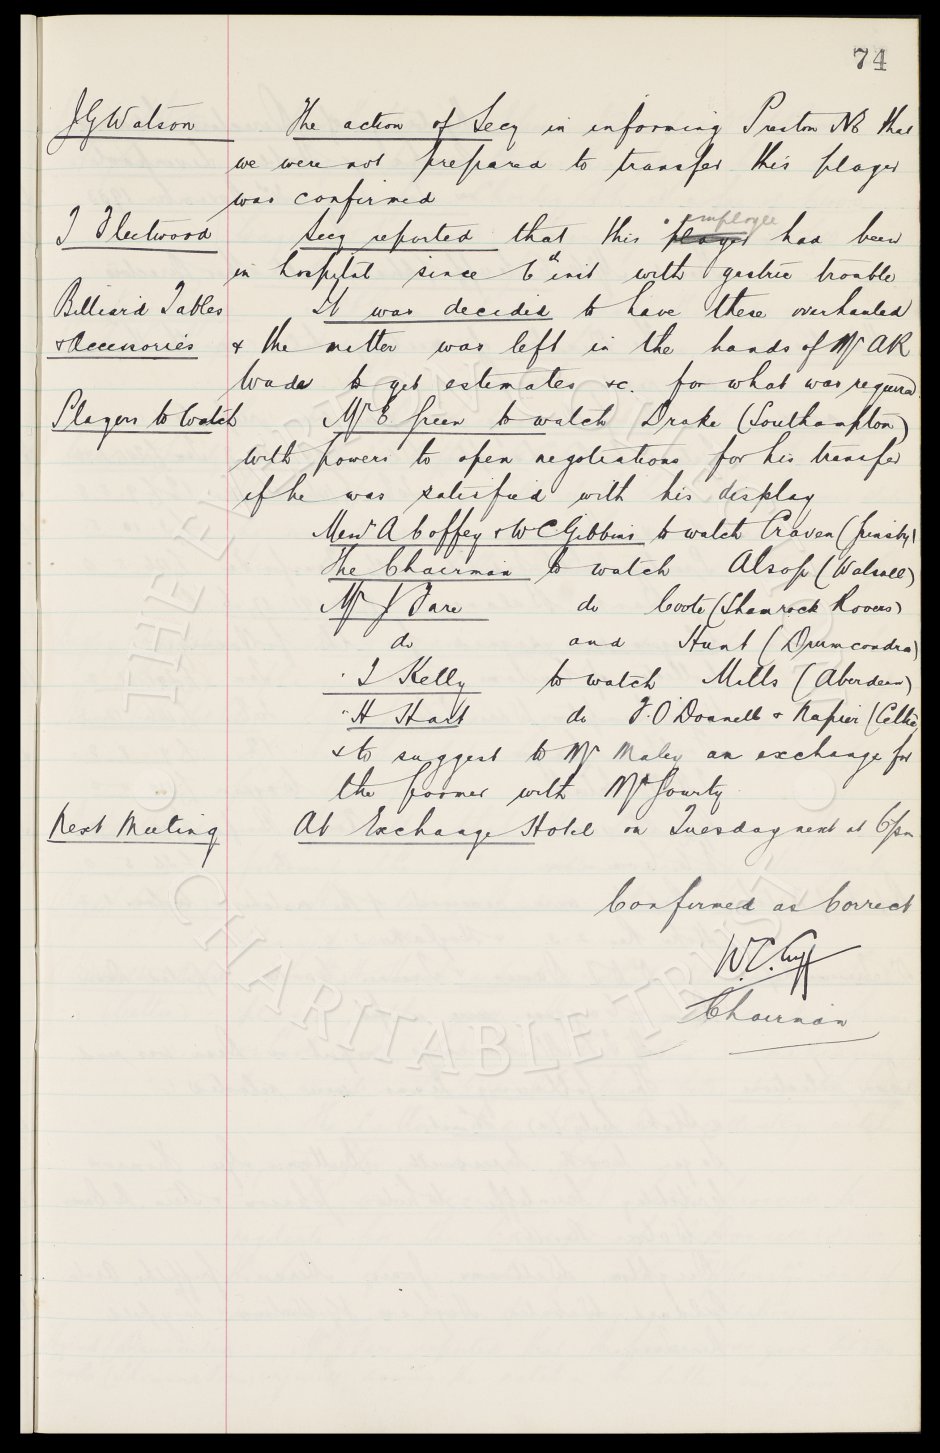 74
J G Watson The action of Secy in informing Preston NE that
we were not prepared to transfer this player
was confirmed
T Fleetwood Secy reported that this player employee had been
in hospital since 6th inst with gastric trouble
Billiard Tables It was decided to have these overhauled
& Accessories & the matter was left in the hands of Mr A R
Wade to get estimates &c. for what was required
Players to Watch Mr E Green to watch Drake (Southampton)
with powers to open negotiations for his transfer
if he was satisfied with his display
Messrs A Coffey & W C Gibbins to watch Craven (Grimsby)
The Chairman to watch Alsop (Walsall)
Mr J Fare do Coote (Shamrock Rovers)
do and Hunt (Drumcondra)
" T Kelly to watch Mills (Aberdeen)
" H Hart do F. O'Donnell & Napier (Celtic)
& to suggest to Mr Maley an exchange for
the former with McGourty
Next Meeting At Exchange Hotel on Tuesday next at 6 pm
Confirmed as Correct
W.C. Cuff
Chairman
THE EVERTON FC
CHARITABLE TRUST